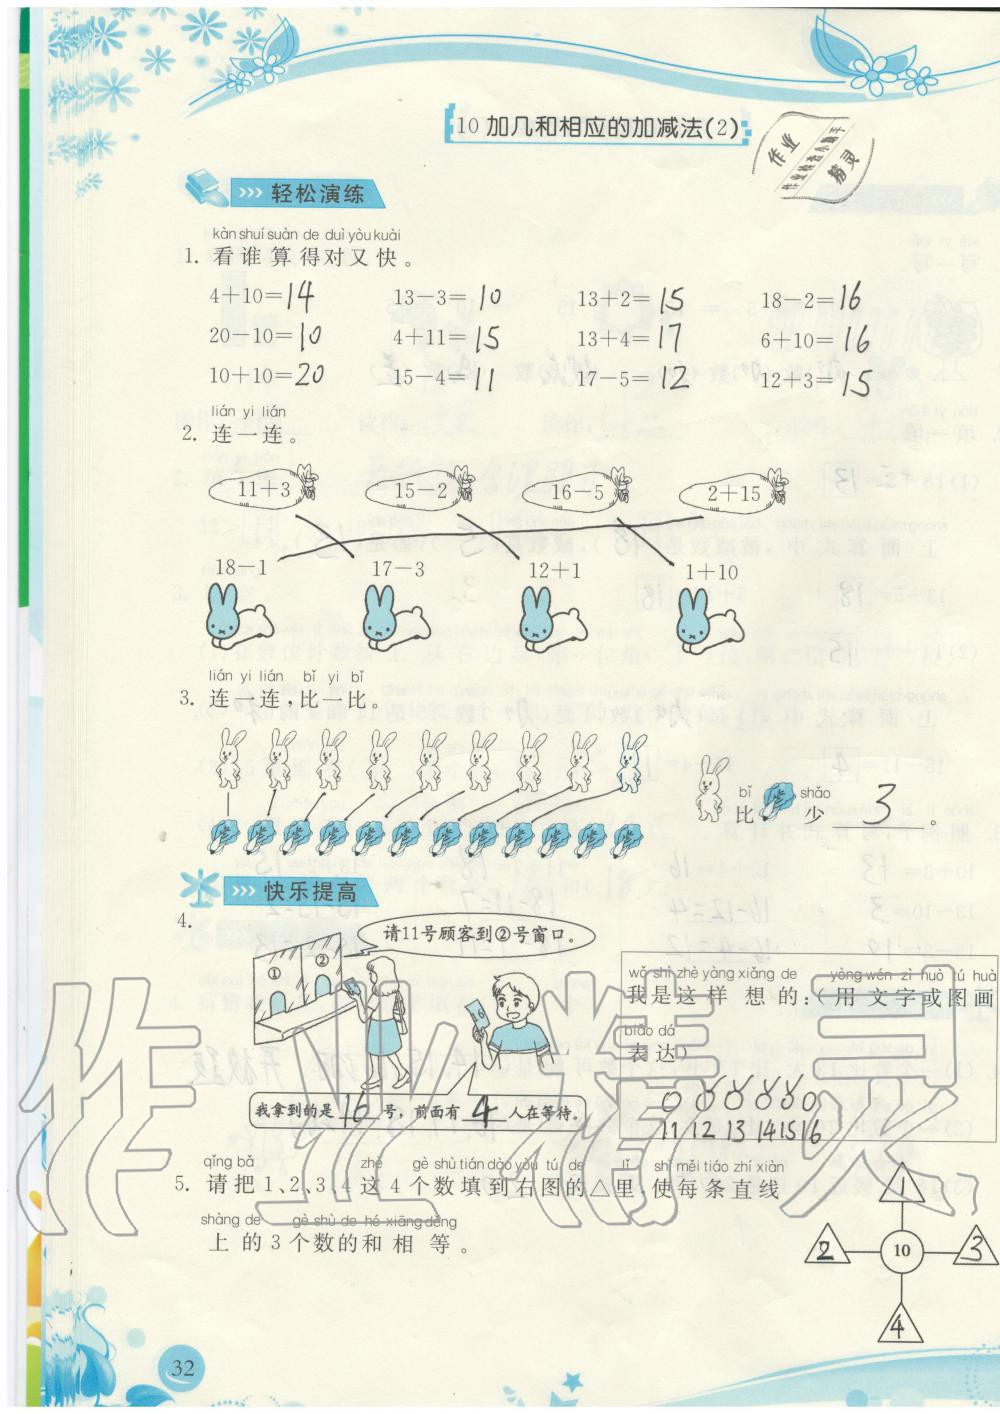 10加几和相应的加减法(2)
作业
作业检查小助手
精灵
>>> 轻松演练
kàn shuí suàn de duì yòu kuài
1. 看谁算得对又快。
4+10=14 13-3=10 13+2=15 18-2=16
20-10=10 4+11=15 13+4=17 6+10=16
10+10=20 15-4=11 17-5=12 12+3=15
lián yi lián
2. 连一连。
11+3 15-2 16-5 2+15
18-1 17-3 12+1 1+10
lián yi lián bǐ yi bǐ
3. 连一连,比一比。
bǐ shǎo
比 少 3 。
>>> 快乐提高
4.
请11号顾客到②号窗口。
① ②
16
我拿到的是 16 号,前面有 4 人在等待。
wǒ shì zhè yàng xiǎng de yòng wén zì huò tú huà
我是这样想的:(用文字或图画
biǎo dá
表达)
11 12 13 14 15 16
qǐng bǎ zhè gè shù tián dào yòu tú de lǐ shǐ měi tiáo zhí xiàn
5. 请把1、2、3、4这4个数填到右图的△里,使每条直线
shàng de gè shù de hé xiāng děng
上的3个数的和相等。
1
2 10 3
4
作业精灵
32